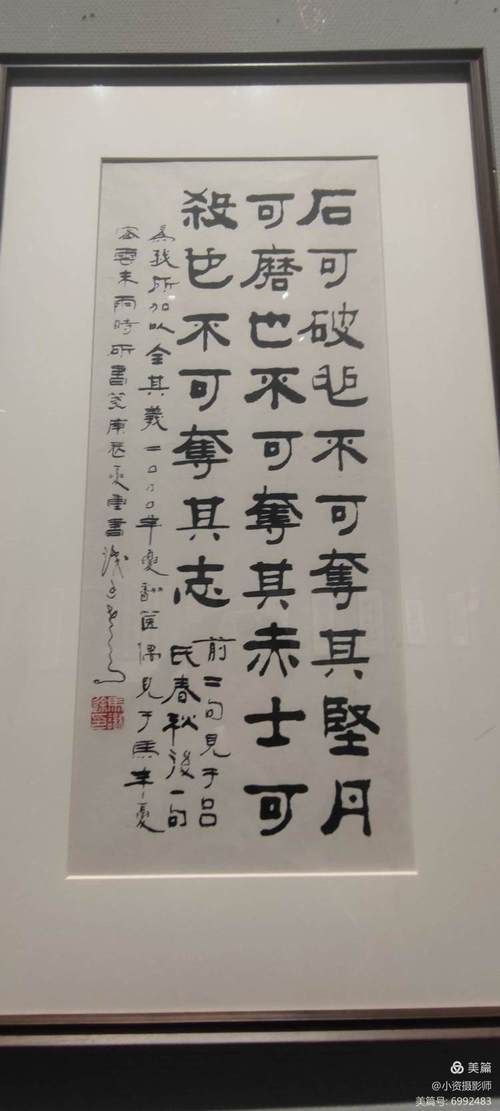 石可破也不可奪其堅丹
可磨也不可奪其赤士可
殺也不可奪其志
前二句見于吕
氏春秋後一句
為我所加以全其義二〇〇〇年夏翻偶見于馬年夏
密雲未雨時所書庚辰重書
美篇
@小资摄影师
美篇号: 6992483